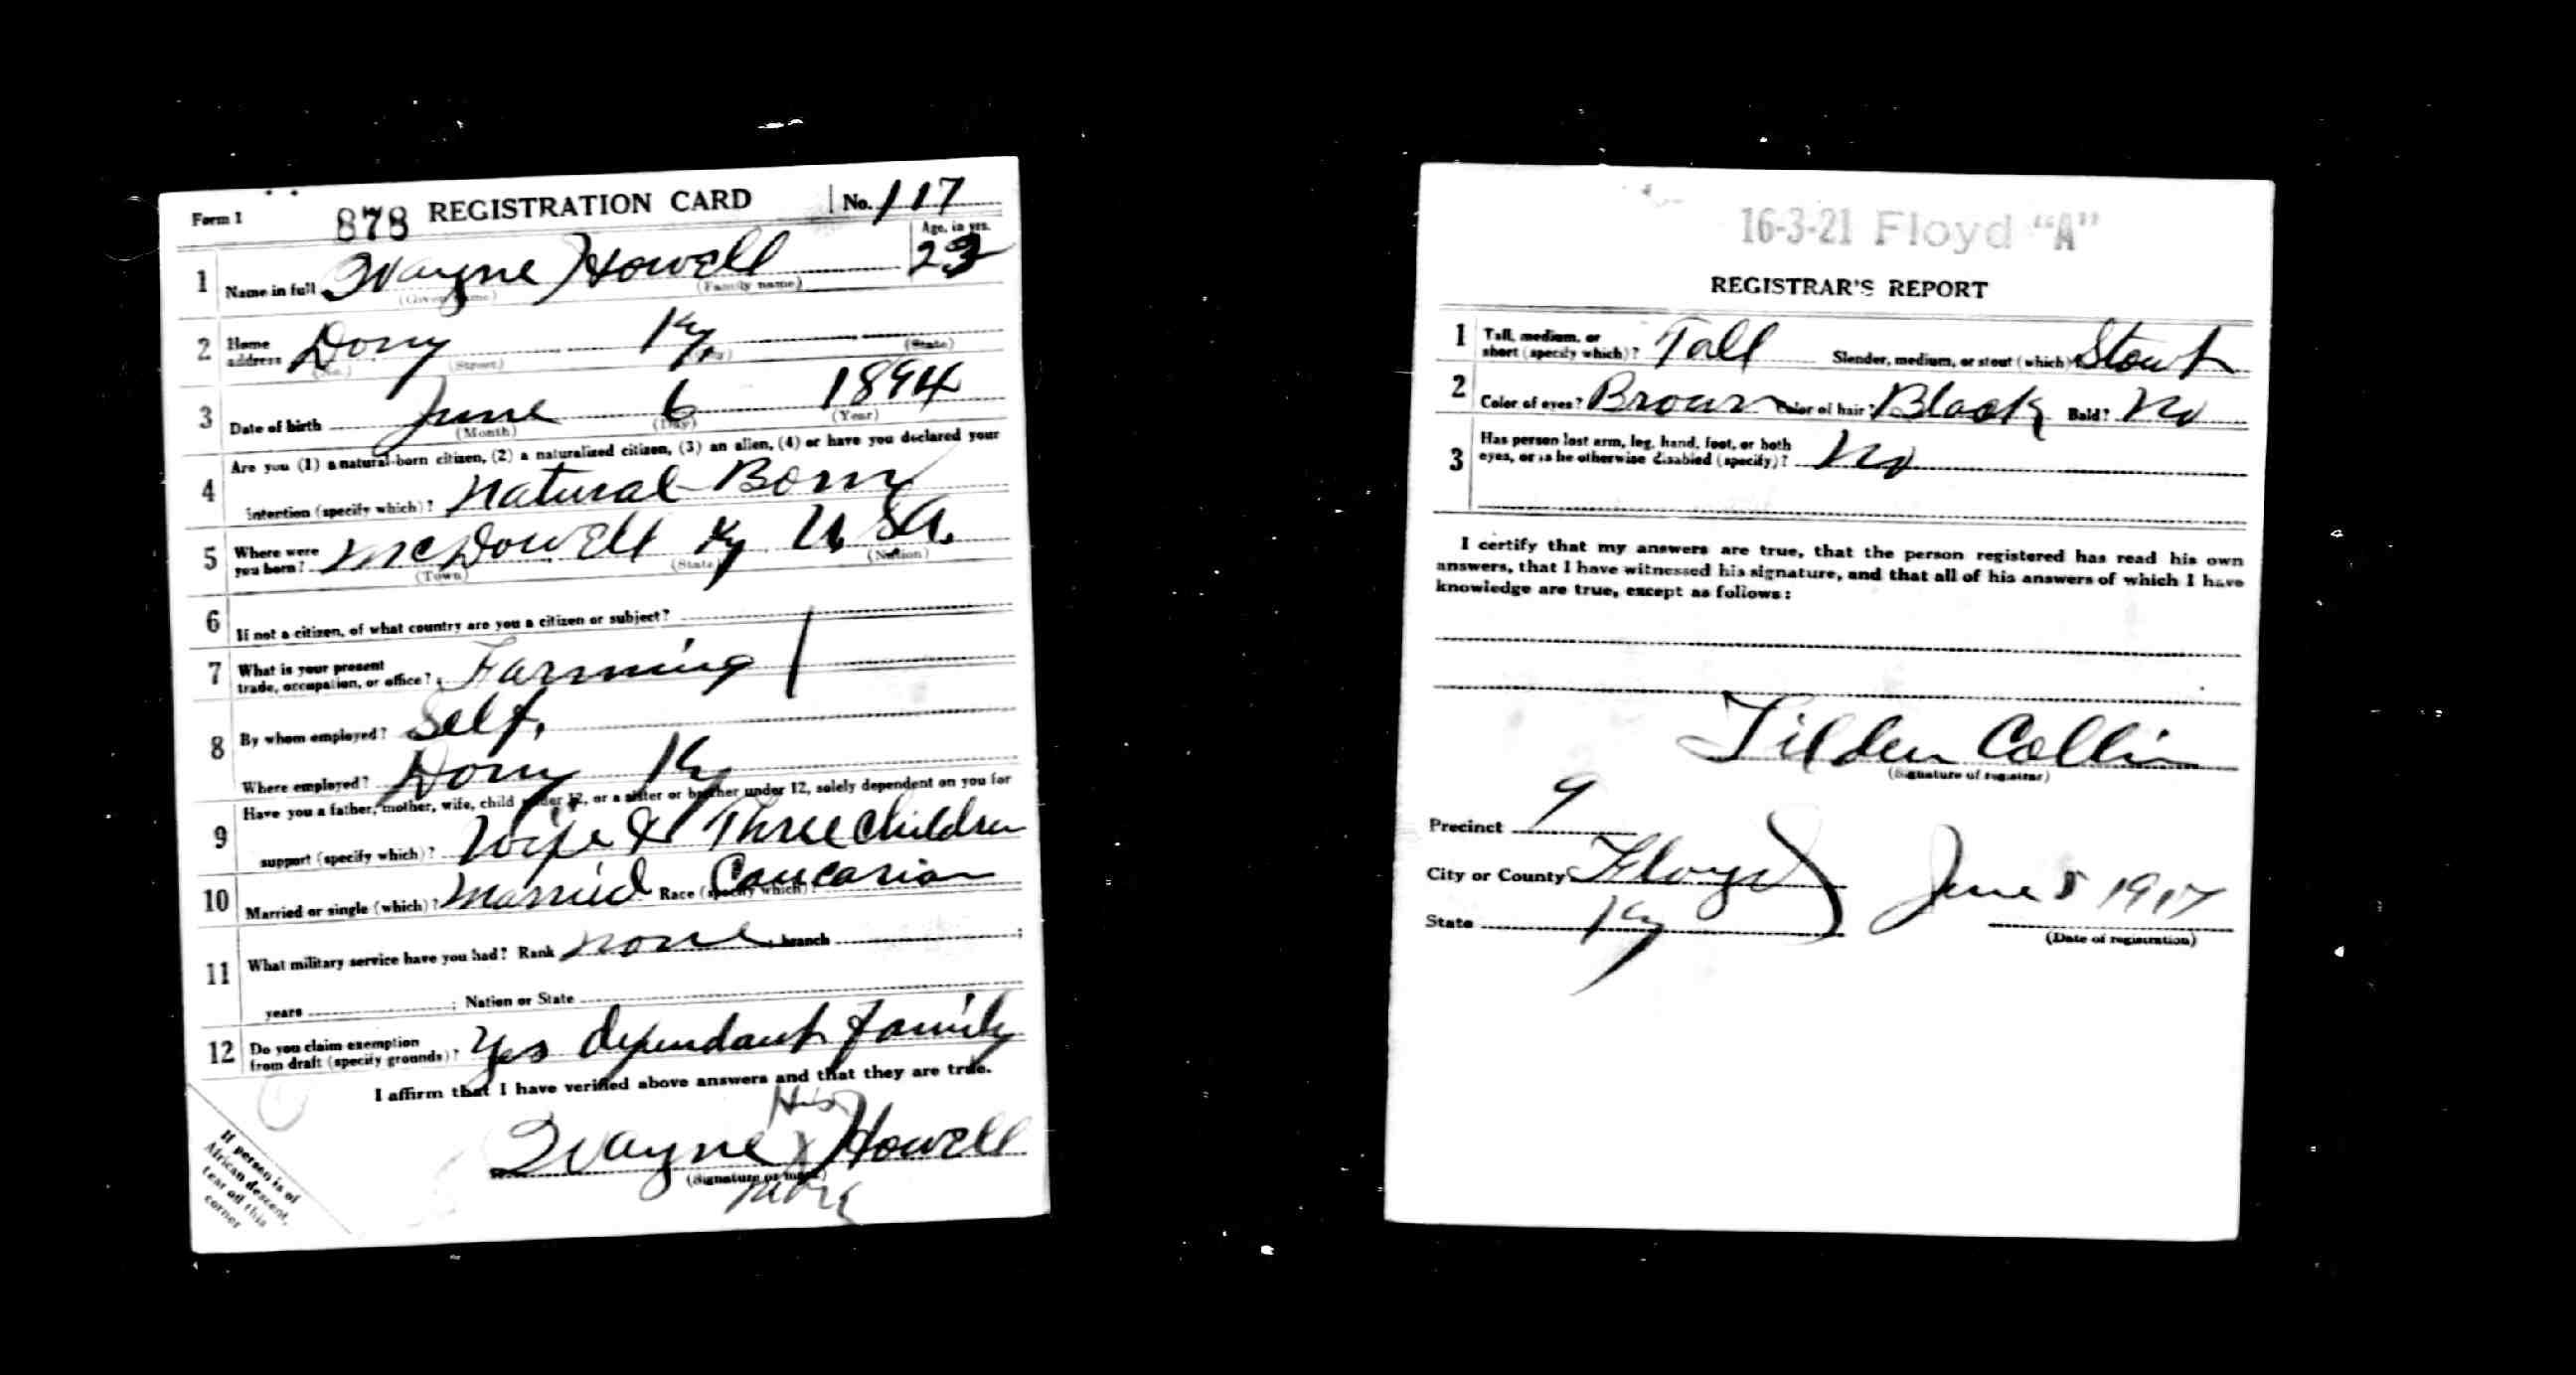 Form 1 878 REGISTRATION CARD No. 117
Age, in yrs.
1 Name in full Wayne Howell 23
(Given name) (Family name)
2 Home address Dony Ky.
(No.) (Street) (City) (State)
3 Date of birth June 6 1894
(Month) (Day) (Year)
Are you (1) a natural-born citizen, (2) a naturalized citizen, (3) an alien, (4) or have you declared your
4 intention (specify which)? Natural Born
5 Where were you born? McDowell Ky U.S.A.
(Town) (State) (Nation)
6 If not a citizen, of what country are you a citizen or subject?
7 What is your present trade, occupation, or office? Farming
8 By whom employed? Self.
Where employed? Dony Ky
Have you a father, mother, wife, child under 12, or a sister or brother under 12, solely dependent on you for
9 support (specify which)? Wife & Three Children
10 Married or single (which)? Married Race (specify which)? Caucasian
11 What military service have you had? Rank none ; branch ;
years ; Nation or State
12 Do you claim exemption from draft (specify grounds)? Yes dependant family
I affirm that I have verified above answers and that they are true.
His
Wayne X Howell
(Signature or mark)
mark
If person is of
African descent,
tear off this
corner
16-3-21 Floyd "A"
REGISTRAR'S REPORT
1 Tall, medium, or short (specify which)? Tall Slender, medium, or stout (which)? Stout
2 Color of eyes? Brown Color of hair? Black Bald? No
3 Has person lost arm, leg, hand, foot, or both eyes, or is he otherwise disabled (specify)? No
I certify that my answers are true, that the person registered has read his own
answers, that I have witnessed his signature, and that all of his answers of which I have
knowledge are true, except as follows:
Tilden Collin
(Signature of registrar)
Precinct 9
City or County Floyd
State Ky
June 5 1917
(Date of registration)